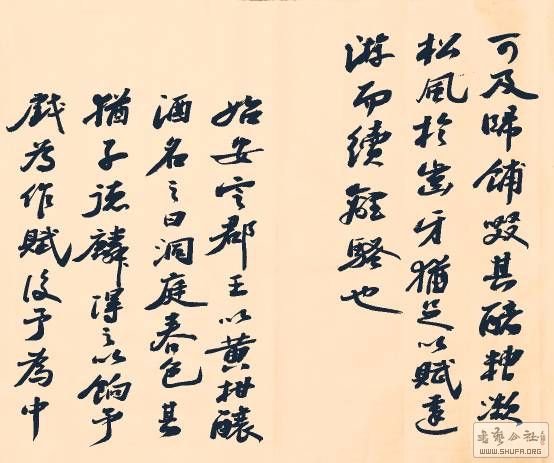 可及歸餔啜其醨糟漱
松風於齒牙猶足以賦遠
遊而續離騷也
始安定郡王以黃柑釀
酒名之曰洞庭春色其
猶子德麟得之以餉予
戲為作賦後予為中
書藝公社
WWW.SHUFA.ORG